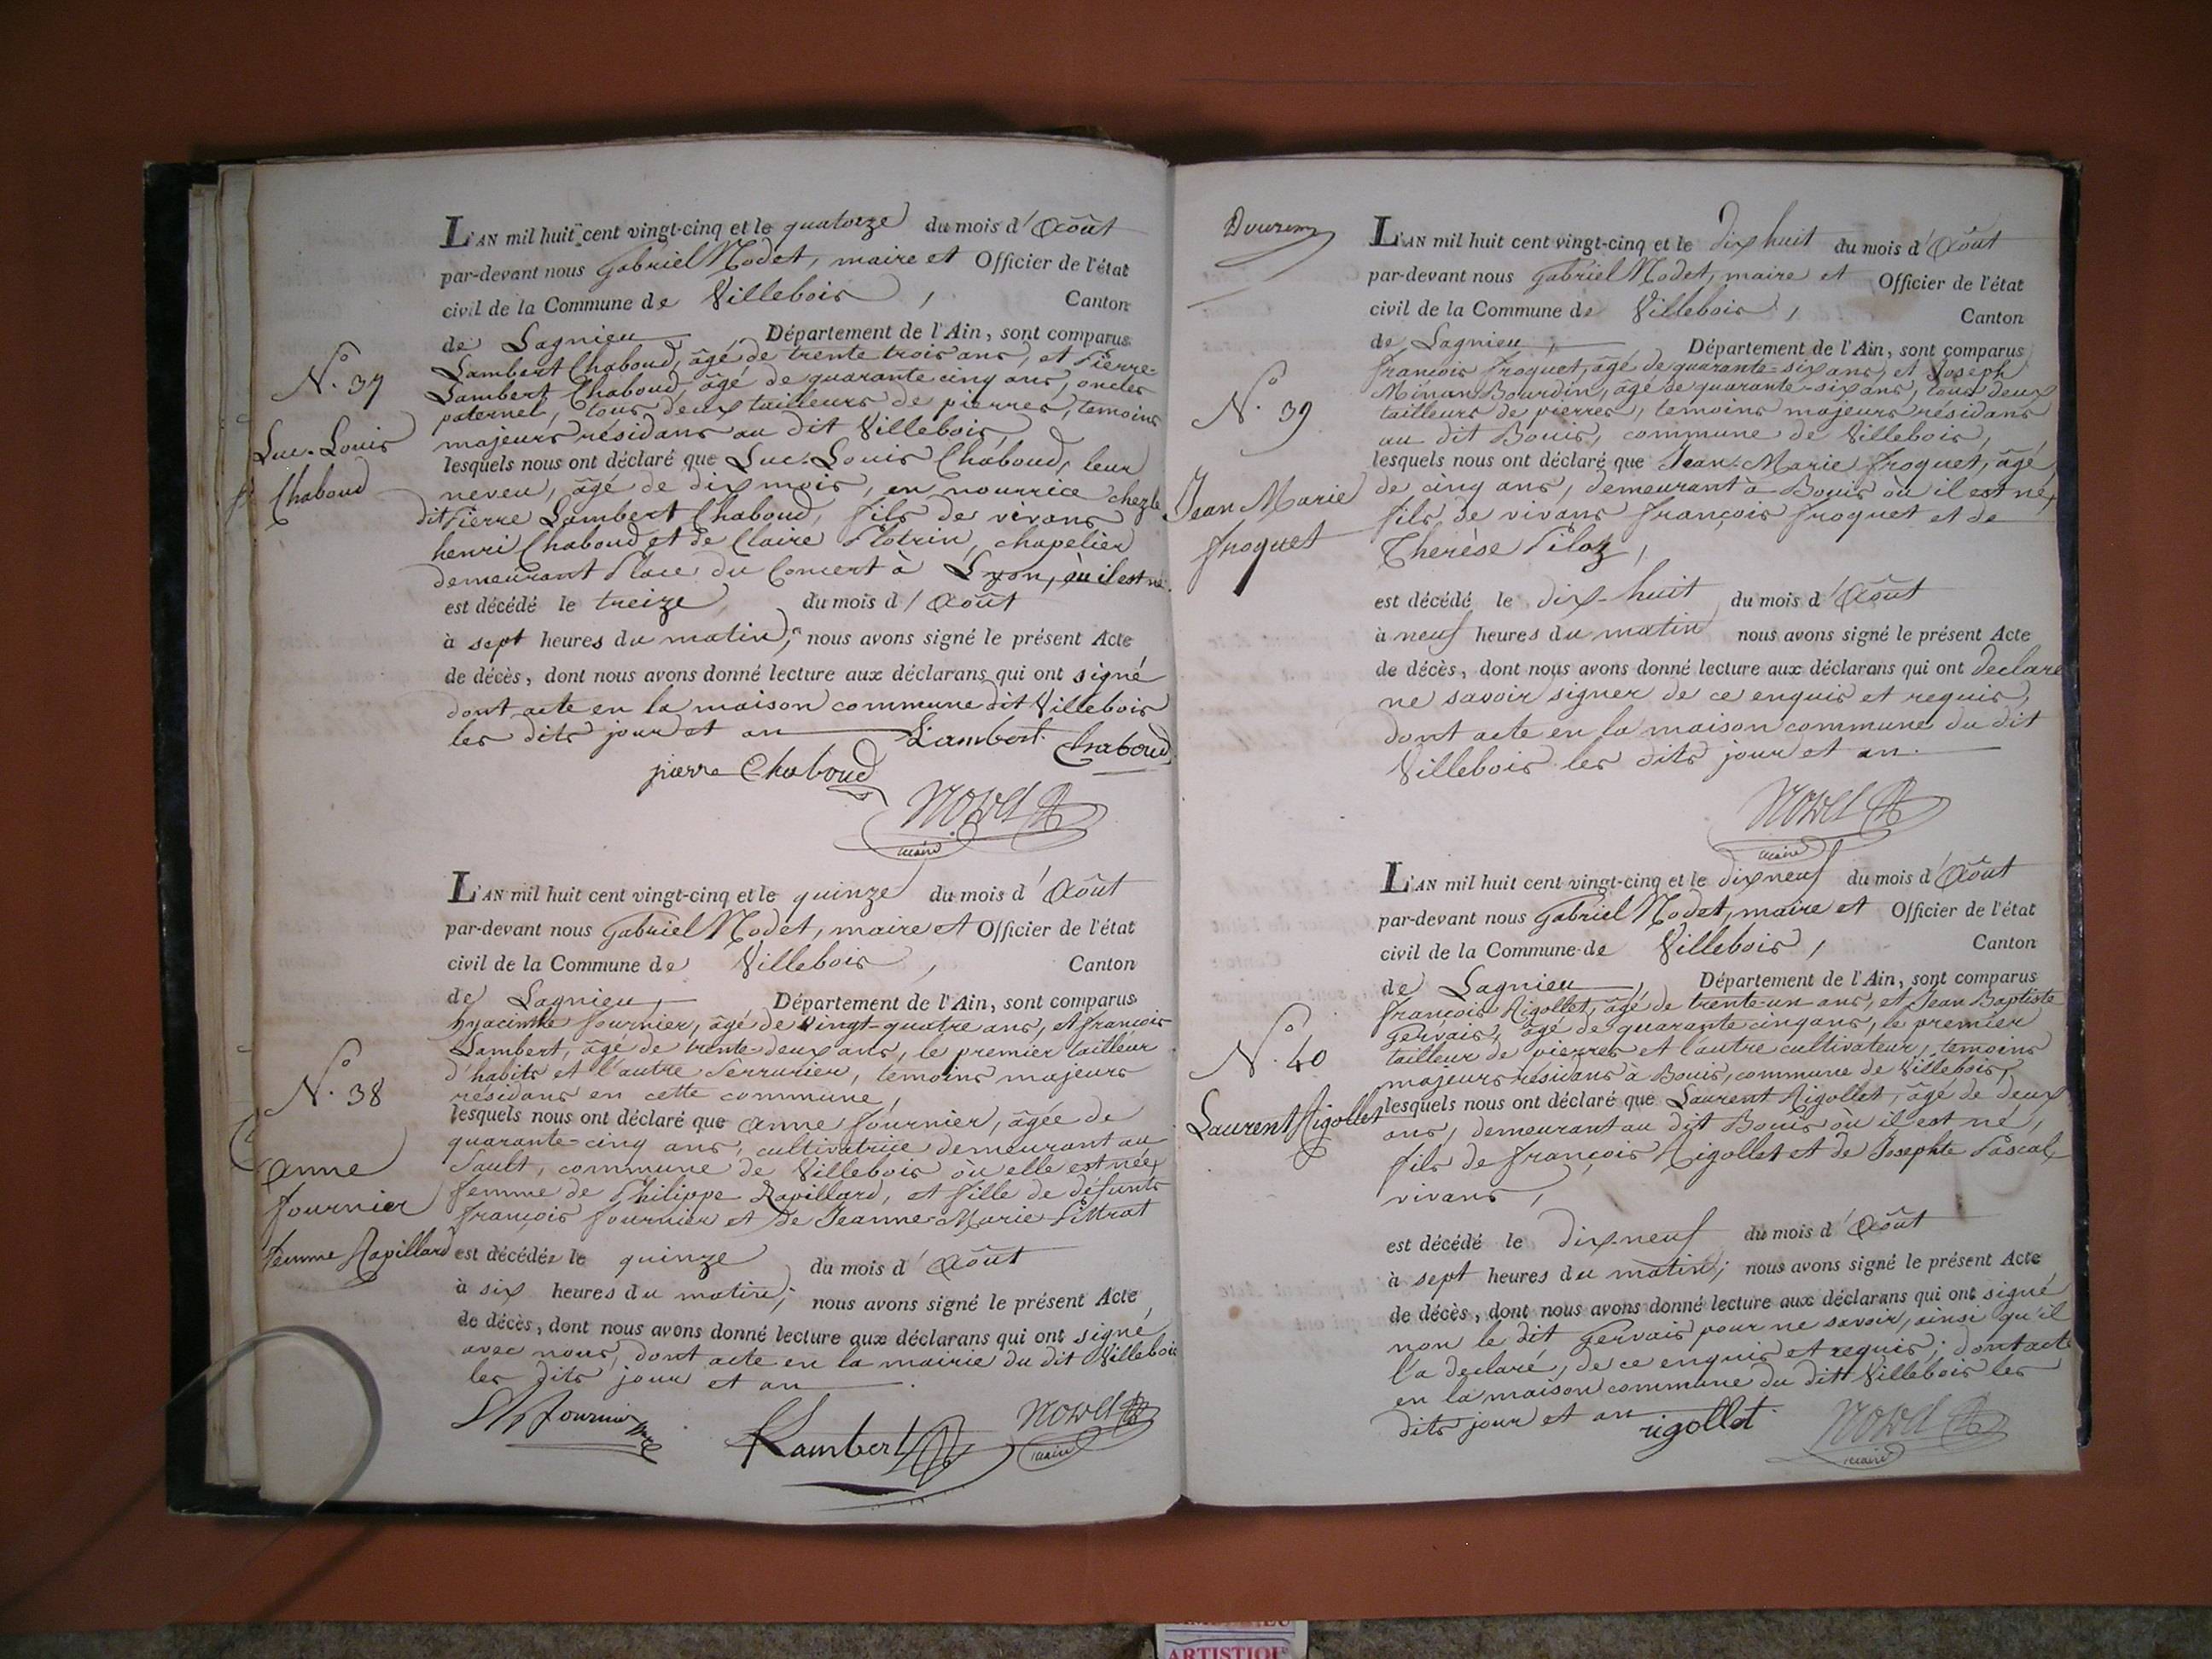 L'AN mil huit cent vingt-cinq et le quatorze du mois d'Août
par-devant nous Gabriel Nodet, maire et Officier de l'état
civil de la Commune de Villebois, Canton
de Lagnieu, Département de l'Ain, sont comparus
Lambert Chaboud, âgé de trente trois ans, et Pierre-
Lambert Chaboud, âgé de quarante cinq ans, oncles
paternel, tous deux tailleurs de pierres, temoins
majeurs résidans au dit Villebois,
lesquels nous ont déclaré que Luc-Louis Chaboud, leur
neveu, âgé de dix mois, en nourrice chez le
dit Pierre Lambert Chaboud, fils de vivans
henri Chaboud et de Claire Plotrin, chapelier
demeurant Place du Concert à Lyon, où il est né
est décédé le treize du mois d'Août
à sept heures du matin; nous avons signé le présent Acte
de décès, dont nous avons donné lecture aux déclarans qui ont signé
dont acte en la maison commune dit Villebois
les dits jour et an
Lambert Chaboud
pierre Chaboud
Nodet
maire
N.° 37
Luc-Louis
Chaboud
L'AN mil huit cent vingt-cinq et le quinze du mois d'Août
par-devant nous Gabriel Nodet, maire et Officier de l'état
civil de la Commune de Villebois, Canton
de Lagnieu, Département de l'Ain, sont comparus
hyacinthe fournier, âgé de vingt-quatre ans, et françois
Lambert, âgé de trente-deux ans, le premier tailleur
d'habits et l'autre Serrurier, temoins majeurs
résidans en cette commune,
lesquels nous ont déclaré que anne fournier, âgée de
quarante-cinq ans, cultivatrice demeurant au
Sault, commune de Villebois où elle est née,
femme de Philippe Ravillard, et fille de défunts
françois fournier et de Jeanne-Marie Littrat
est décédée le quinze du mois d'Août
à six heures du matin; nous avons signé le présent Acte
de décès, dont nous avons donné lecture aux déclarans qui ont signé
avec nous, dont acte en la mairie du dit Villebois
les dits jour et an
fournier
Lambert
Nodet
maire
N.° 38
anne
fournier
femme Rapillard
L'AN mil huit cent vingt-cinq et le dix huit du mois d'Août
par-devant nous Gabriel Nodet, maire et Officier de l'état
civil de la Commune de Villebois, Canton
de Lagnieu, Département de l'Ain, sont comparus
françois froquet, âgé de quarante-six ans, et Joseph
Minan Bourdin, âgé de quarante-six ans, tous deux
tailleurs de pierres, temoins majeurs résidans
au dit Bouis, commune de Villebois,
lesquels nous ont déclaré que Jean-Marie froquet, âgé
de cinq ans, demeurant à Bouis où il est né,
fils de vivans françois froquet et de
Therèse Piloz,
est décédé le dix-huit du mois d'Août
à neuf heures du matin nous avons signé le présent Acte
de décès, dont nous avons donné lecture aux déclarans qui ont declaré
ne savoir signer de ce enquis et requis,
dont acte en la maison commune du dit
Villebois les dits jour et an.
Nodet
maire
N.° 39
Jean Marie
froquet
L'AN mil huit cent vingt-cinq et le dix neuf du mois d'Août
par-devant nous Gabriel Nodet, maire et Officier de l'état
civil de la Commune de Villebois, Canton
de Lagnieu, Département de l'Ain, sont comparus
françois Rigollet, âgé de trente-un ans, et Jean Baptiste
Gervais, âgé de quarante cinq ans, le premier
tailleur de pierres et l'autre cultivateur, temoins
majeurs résidans à Bouis, commune de Villebois,
lesquels nous ont déclaré que Laurent Rigollet, âgé de deux
ans, demeurant au dit Bouis où il est né,
fils de françois Rigollet et de Josephte Pascal,
vivans,
est décédé le dix-neuf du mois d'Août
à sept heures du matin; nous avons signé le présent Acte
de décès, dont nous avons donné lecture aux déclarans qui ont signé
non le dit Gervais pour ne savoir, ainsi qu'il
l'a declaré, de ce enquis et requis; dont acte
en la maison commune du dit Villebois les
dits jour et an
rigollet
Nodet
maire
N.° 40
Laurent Rigollet
ARTISTIQU